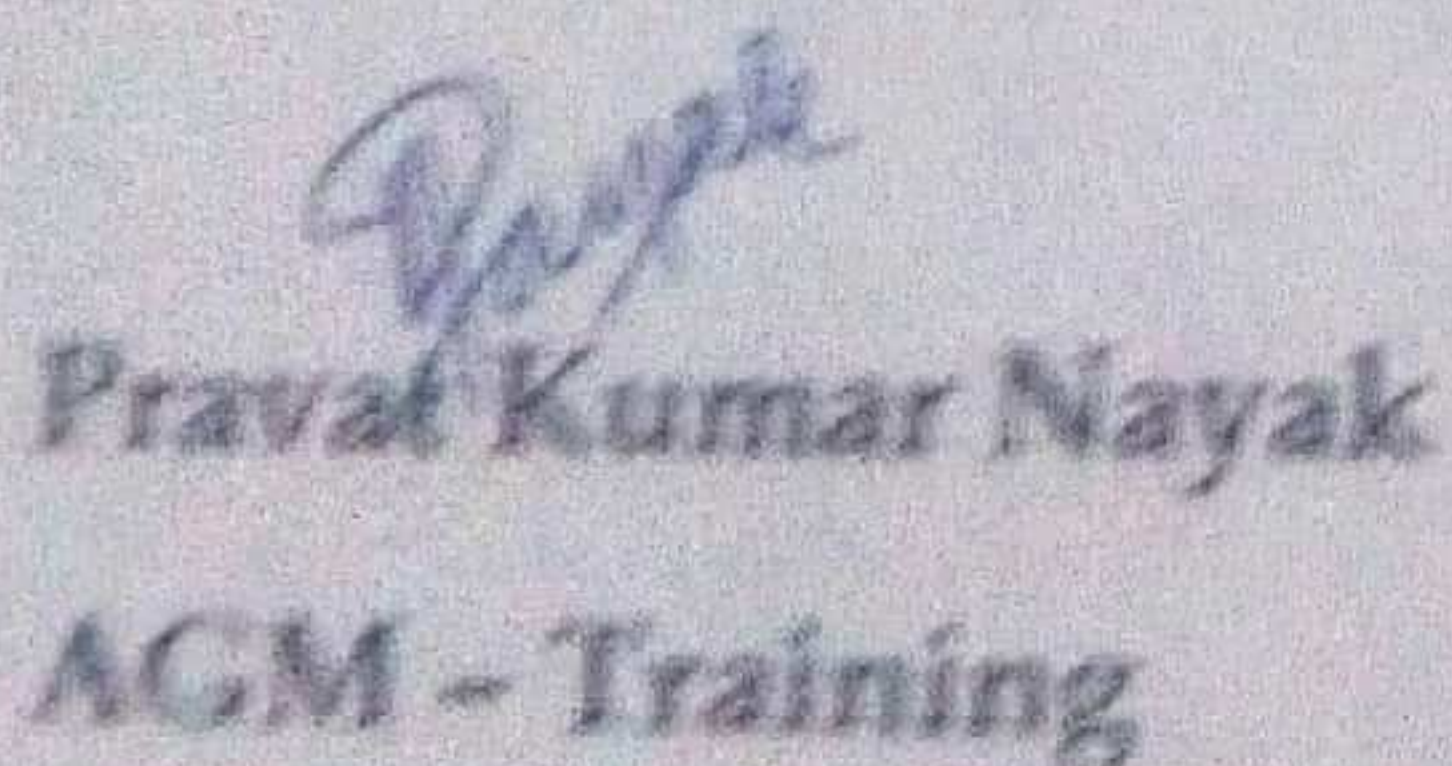 Pravat Kumar Nayak
AGM – Training